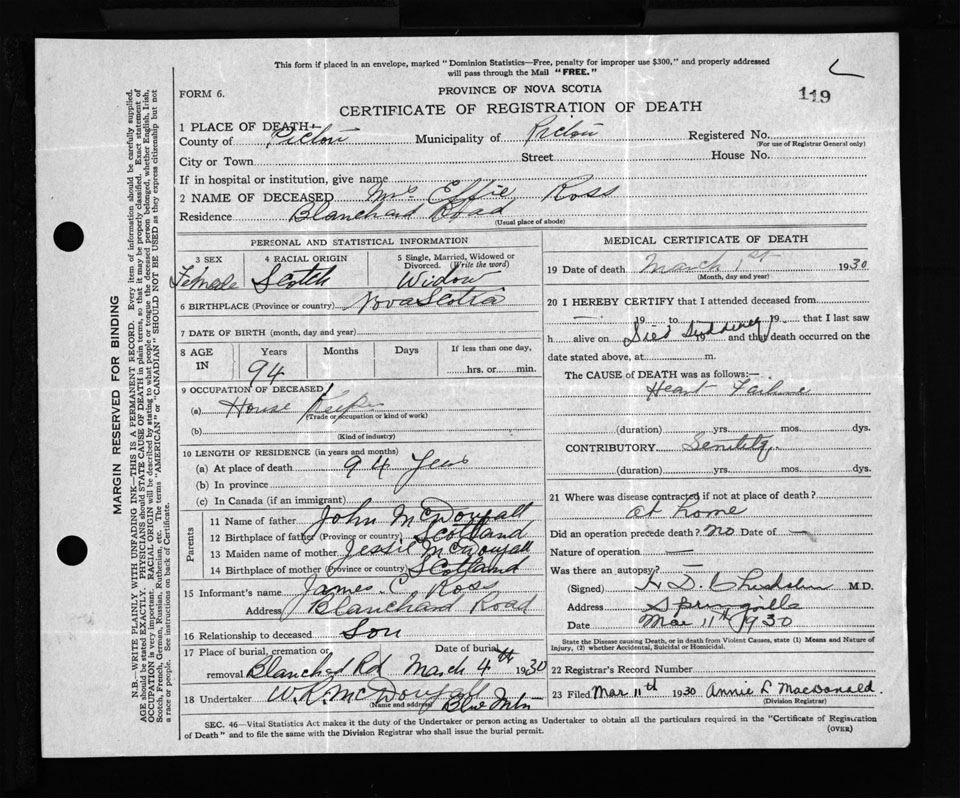 This form if placed in an envelope, marked "Dominion Statistics—Free, penalty for improper use $300," and properly addressed
will pass through the Mail "FREE."
FORM 6.
PROVINCE OF NOVA SCOTIA
119
CERTIFICATE OF REGISTRATION OF DEATH
1 PLACE OF DEATH—
County of Pictou Municipality of Pictou Registered No.
(For use of Registrar General only)
City or Town Street House No.
If in hospital or institution, give name
2 NAME OF DECEASED Mrs Effie Ross
Residence Blanchard Road
(Usual place of abode)
PERSONAL AND STATISTICAL INFORMATION
3 SEX 4 RACIAL ORIGIN 5 Single, Married, Widowed or
Divorced. (Write the word)
Female Scotch Widow
6 BIRTHPLACE (Province or country) Nova Scotia
7 DATE OF BIRTH (month, day and year)
8 AGE IN Years Months Days If less than one day,
94 hrs. or min.
9 OCCUPATION OF DECEASED
(a) House Keeper
(Trade or occupation or kind of work)
(b)
(Kind of industry)
10 LENGTH OF RESIDENCE (in years and months)
(a) At place of death 94 years
(b) In province
(c) In Canada (if an immigrant)
Parents
11 Name of father John McDougall
12 Birthplace of father (Province or country) Scotland
13 Maiden name of mother Jessie McDougall
14 Birthplace of mother (Province or country) Scotland
15 Informant's name James C Ross
Address Blanchard Road
16 Relationship to deceased Son
17 Place of burial, cremation or Date of burial
removal Blanchard Rd March 4th 1930
18 Undertaker W.K. McDougall Blue Mtn
(Name and address)
MEDICAL CERTIFICATE OF DEATH
19 Date of death March 1st 1930
(Month, day and year)
20 I HEREBY CERTIFY that I attended deceased from
— 19 to 19 that I last saw
h alive on Died Suddenly 19 and that death occurred on the
date stated above, at m.
The CAUSE of DEATH was as follows:—
Heart Failure
(duration) yrs. mos. dys.
CONTRIBUTORY Senility
(duration) yrs. mos. dys.
21 Where was disease contracted if not at place of death?
at home
Did an operation precede death? no Date of —
Nature of operation —
Was there an autopsy? —
(Signed) H D Chisholm M.D.
Address Springville
Date Mar 11th 1930
State the Disease causing Death, or in death from Violent Causes, state (1) Means and Nature of
Injury, (2) whether Accidental, Suicidal or Homicidal.
22 Registrar's Record Number
23 Filed Mar 11th 1930 Annie L MacDonald.
(Division Registrar)
SEC. 46—Vital Statistics Act makes it the duty of the Undertaker or person acting as Undertaker to obtain all the particulars required in the "Certificate of Registration
of Death" and to file the same with the Division Registrar who shall issue the burial permit.
(OVER)
MARGIN RESERVED FOR BINDING
N.B.—WRITE PLAINLY WITH UNFADING INK—THIS IS A PERMANENT RECORD. Every item of information should be carefully supplied.
AGE should be stated EXACTLY. PHYSICIANS should STATE CAUSE OF DEATH in plain terms, so that it may be properly classified. Exact statement of
OCCUPATION is very important. RACIAL ORIGIN will be described by stating to what people or tongue the deceased person belonged, whether English, Irish,
Scotch, French, German, Russian, Ruthenian, etc. The terms "AMERICAN" or "CANADIAN" SHOULD NOT BE USED as they express citizenship but not
a race or people. See instructions on back of Certificate.